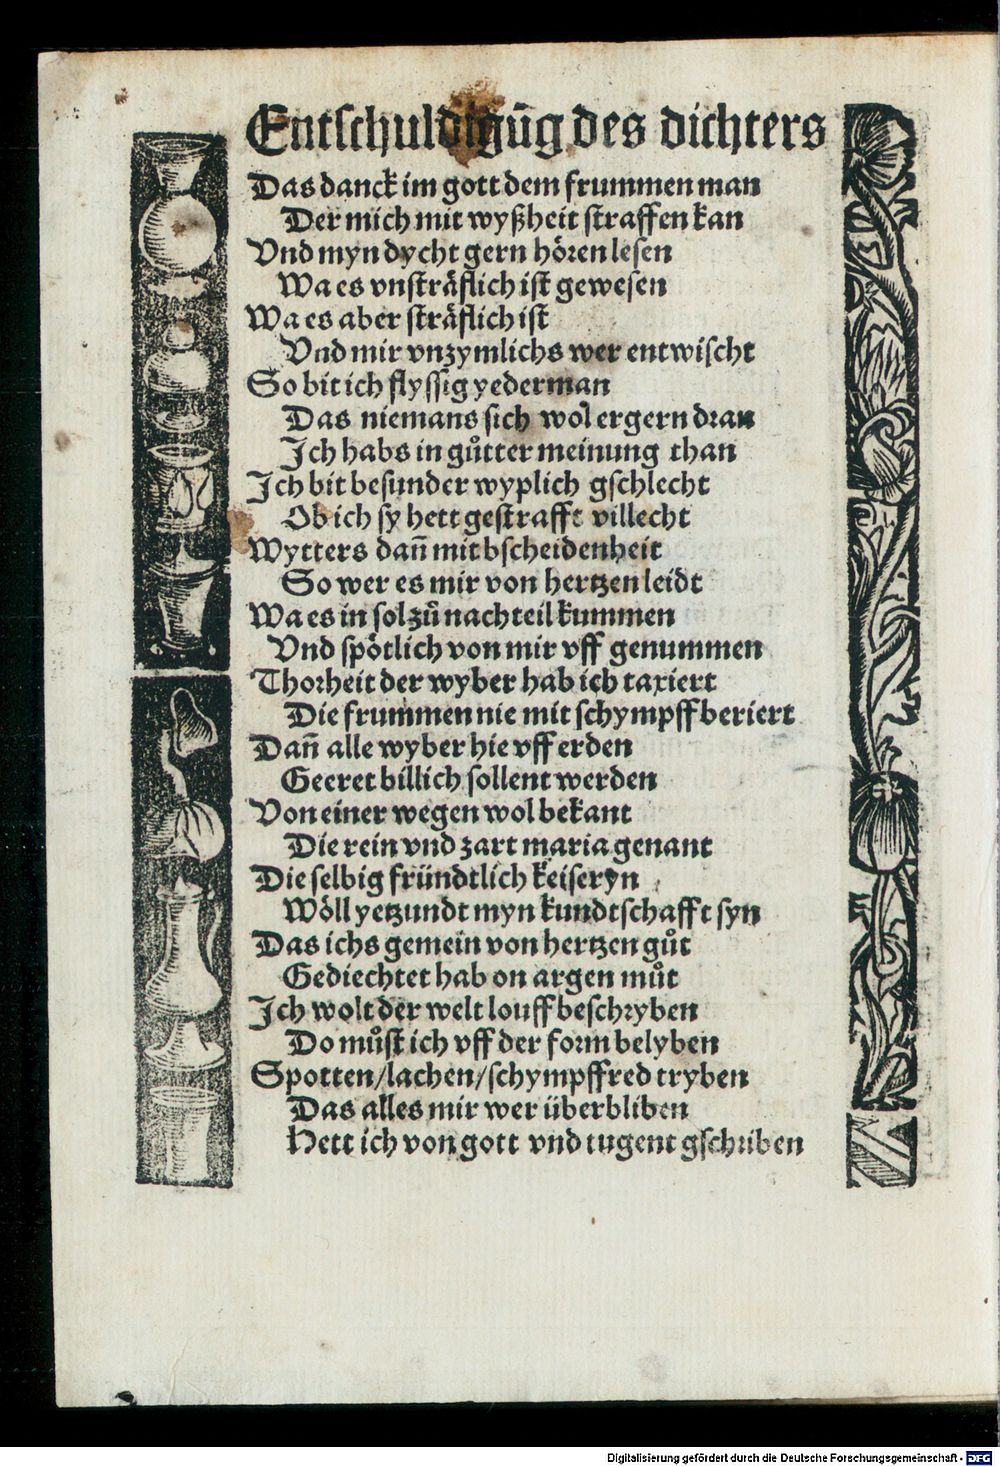 Entschuldigūg des dichters
Das danck im gott dem frummen man
Der mich mit wyßheit straffen kan
Vnd myn dycht gern hören lesen
Wa es vnsträflich ist gewesen
Wa es aber sträflich ist
Vnd mir vnzymlichs wer entwischt
So bit ich flyssig yederman
Das niemans sich wöl ergern dran
Ich habs in gůtter meinung than
Ich bit besunder wyplich gschlecht
Ob ich sy hett gestrafft villecht
Wytters dañ mit bscheidenheit
So wer es mir von hertzen leidt
Wa es in sol zů nachteil kummen
Vnd spötlich von mir vff genummen
Thorheit der wyber hab ich taxiert
Die frummen nie mit schympff beriert
Dañ alle wyber hie vff erden
Geeret billich sollent werden
Von einer wegen wol bekant
Die rein vnd zart maria genant
Die selbig fründtlich keiseryn
Wöll yetzundt myn kundtschafft syn
Das ichs gemein von hertzen gůt
Gediechtet hab on argen můt
Ich wolt der welt louff beschryben
Do můst ich vff der form belyben
Spotten/lachen/schympffred tryben
Das alles mir wer überbliben
Hett ich von gott vnd tugent gschriben
Digitalisierung gefördert durch die Deutsche Forschungsgemeinschaft - DFG